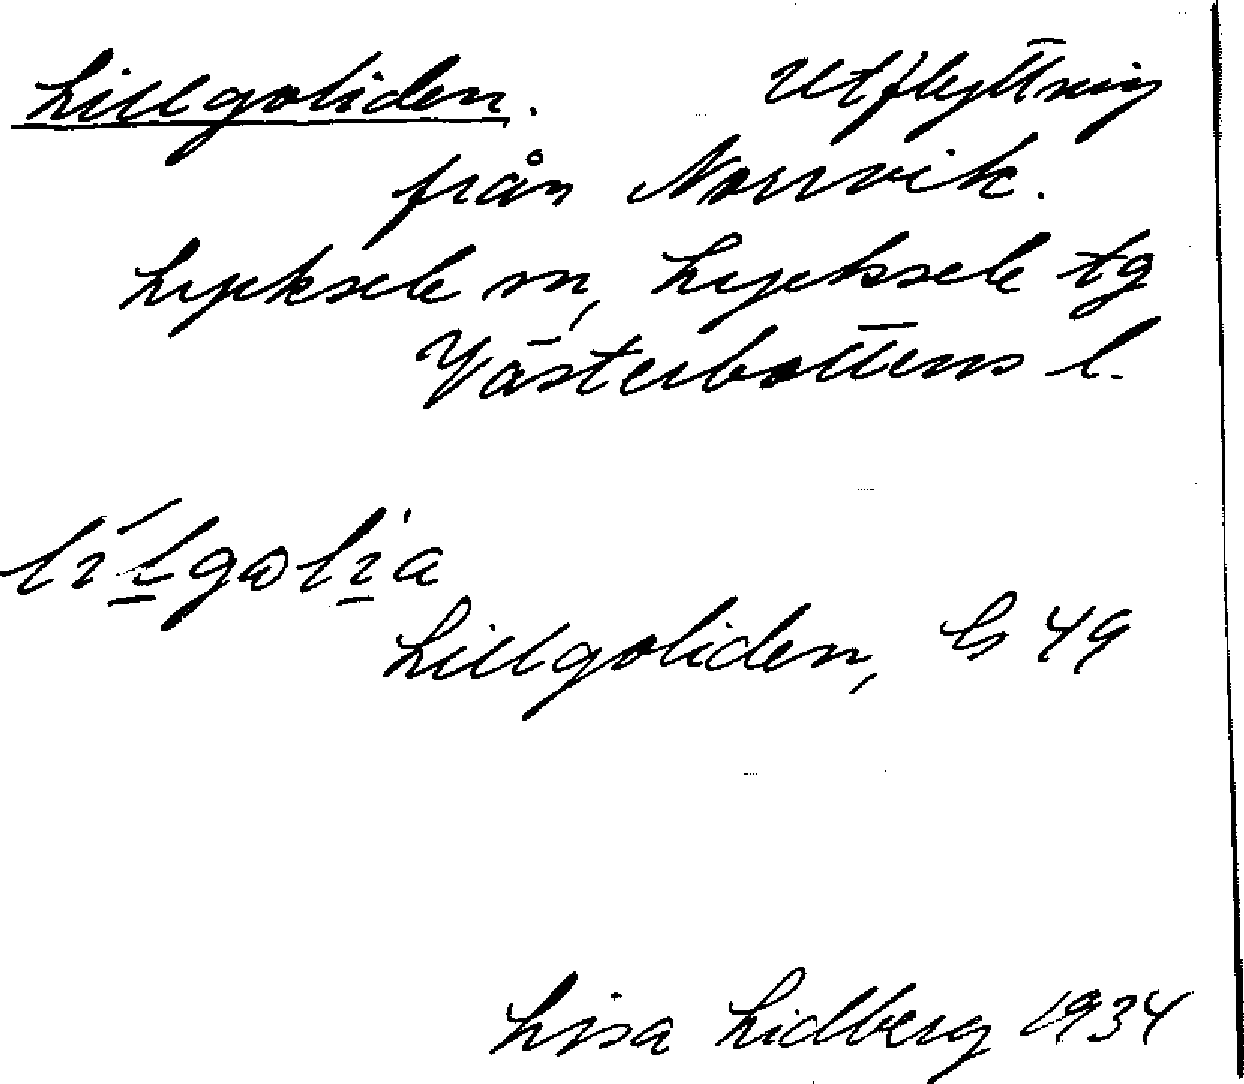 Lillgoliden. Utflyttning
från Norrvik.
Lycksele sn, Lycksele tg
Västerbottens l.
Lillgoliden, G 49
Lisa Lidberg 1934